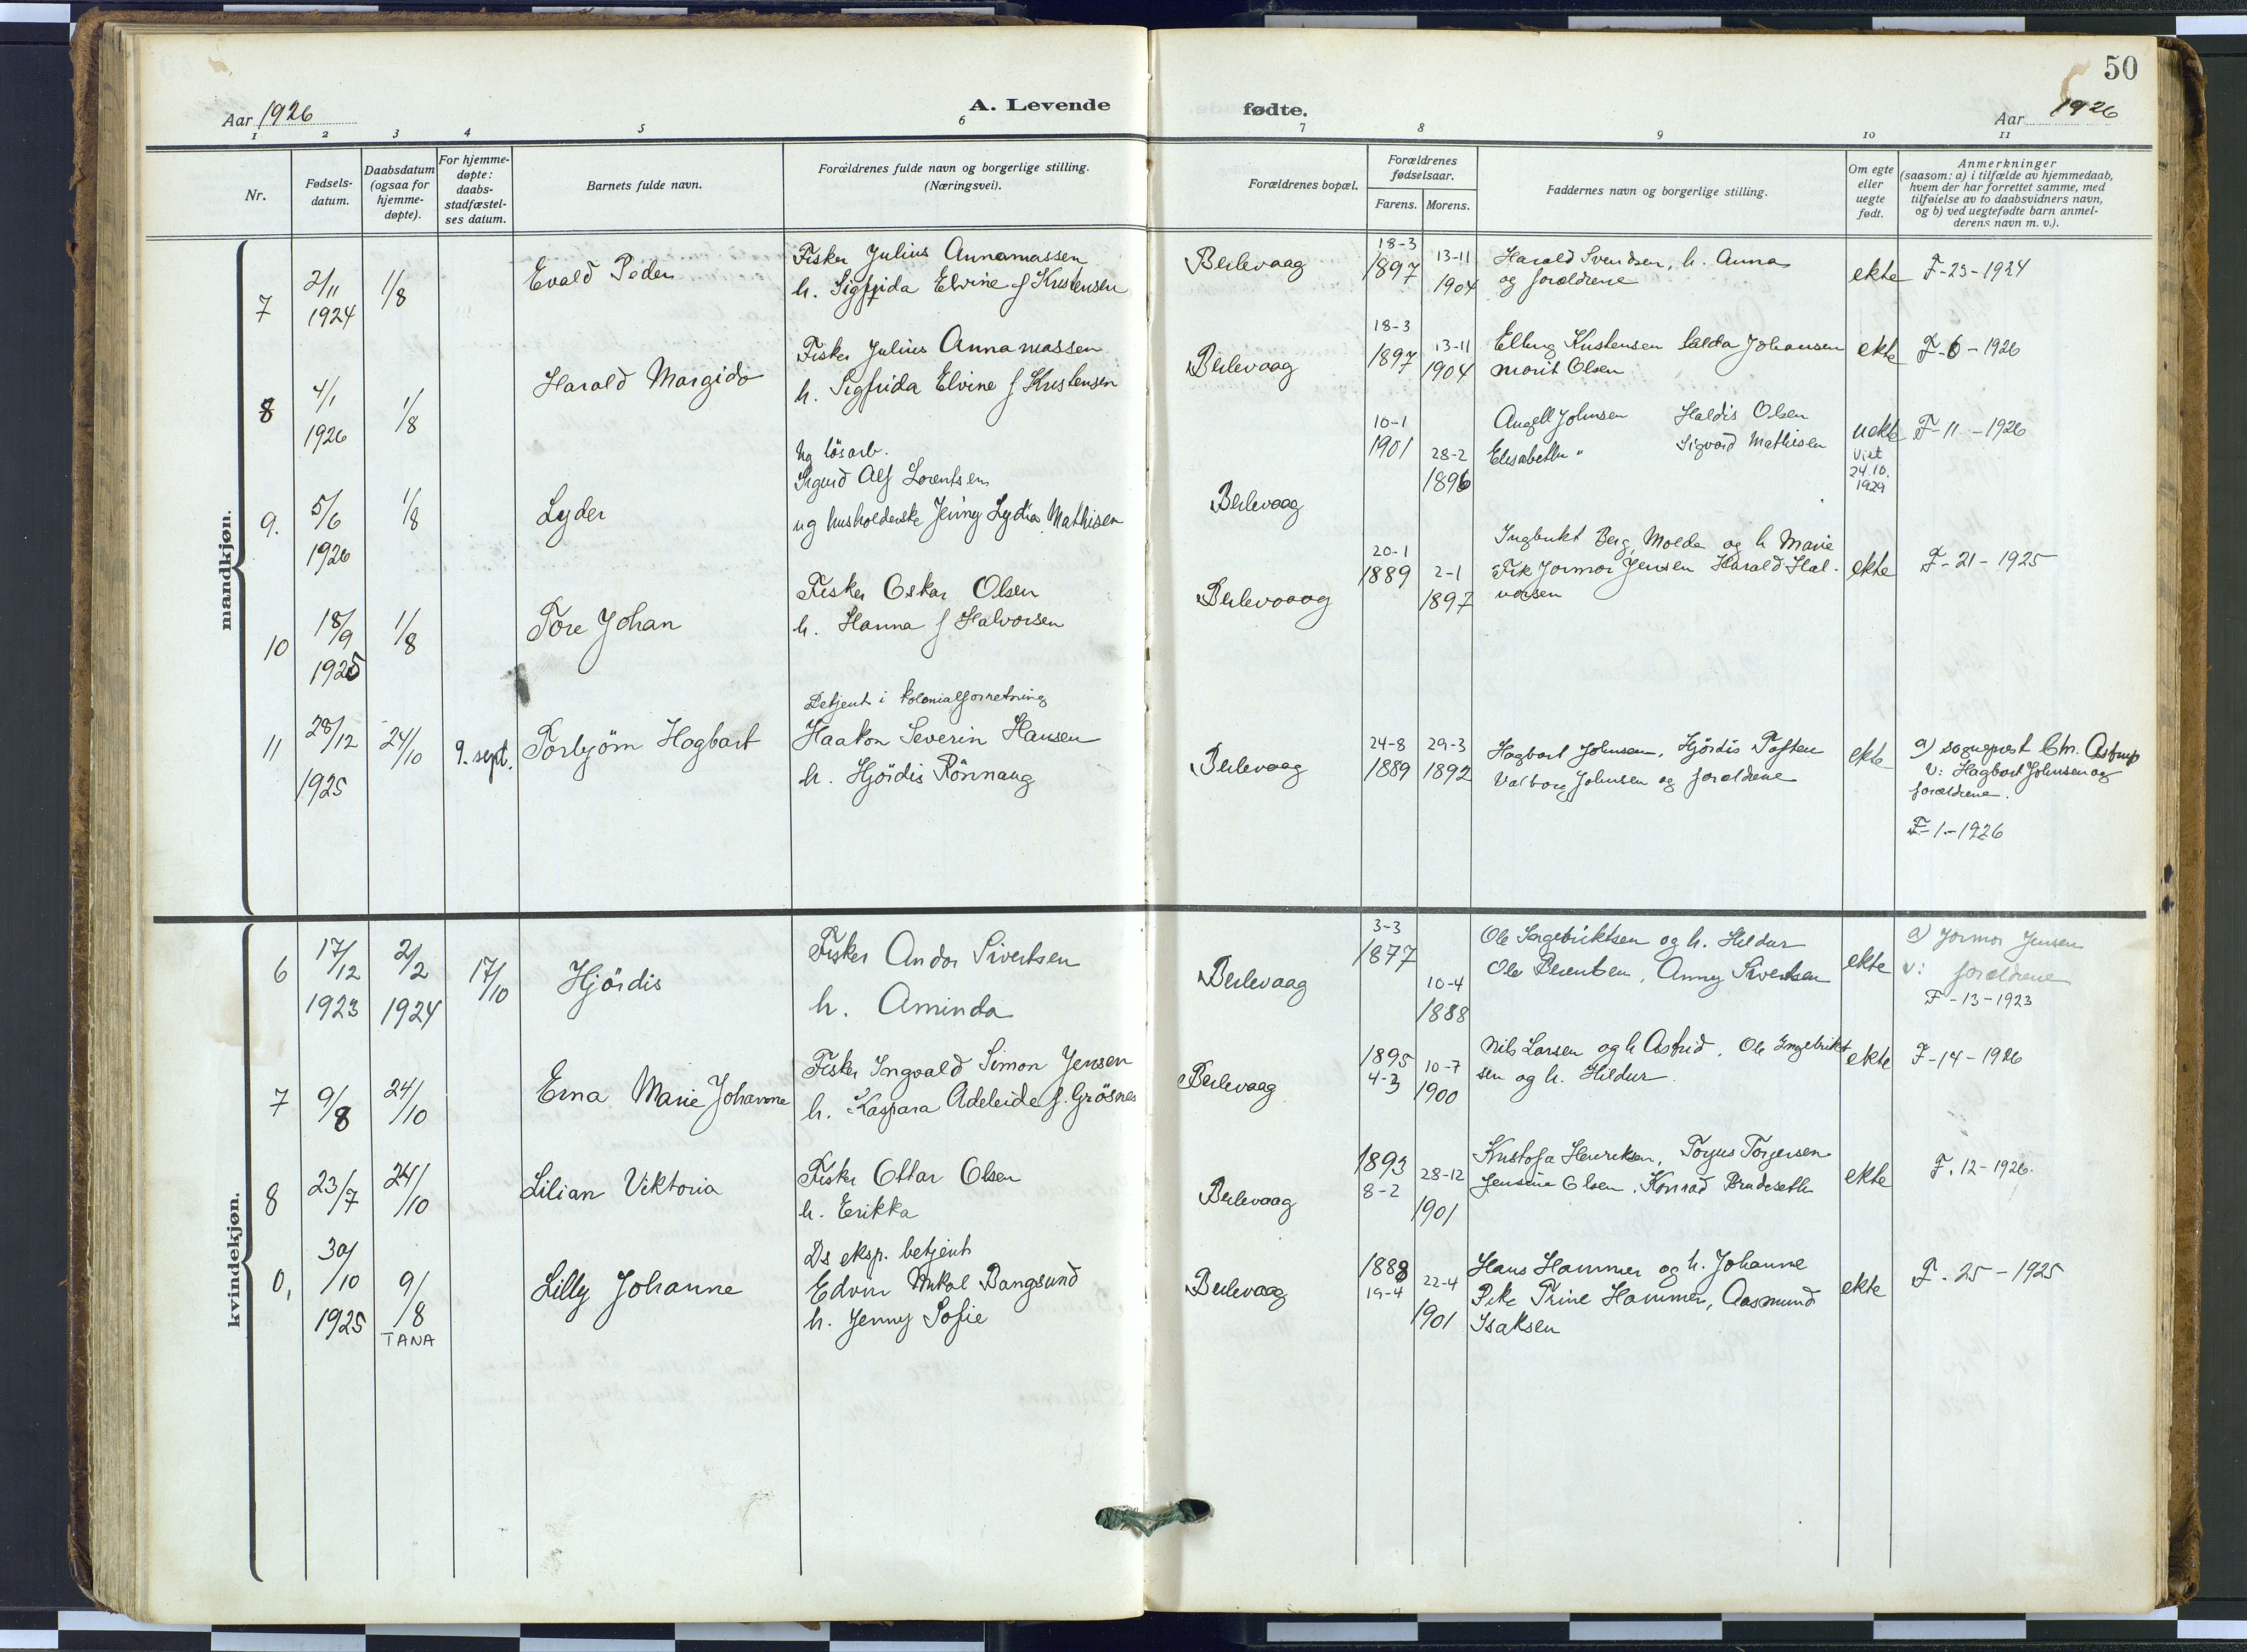 50
Aar 1926
A. Levende
fødte.
Aar 1926
1 2 3 4 5 6 7 8 9 10 11
Nr.
Fødsels-
datum.
Daabsdatum
(ogsaa for
hjemme-
døpte).
For hjemme-
døpte:
daabs-
stadfæstel-
ses datum.
Barnets fulde navn.
Forældrenes fulde navn og borgerlige stilling.
(Næringsvei).
Forældrenes bopæl.
Forældrenes
fødselsaar.
Farens. Morens.
Faddernes navn og borgerlige stilling.
Om egte
eller
uegte
født.
Anmerkninger
(saasom: a) i tilfælde av hjemmedaab,
hvem der har forrettet samme, med
tilføielse av to daabsvidners navn,
og b) ved uegtefødte barn anmel-
derens navn m. v.).
mandkjøn.
7
2/11
1924
1/8
Evald Peder
Fisker Julius Annamassen
h. Sigfrida Elvine f Kristensen
Berlevaag
18-3
1897
13-11
1904
Harald Svendsen, h. Anna
og forældrene
ekte
F-23-1924
8
4/1
1926
1/8
Harald Margido
Fisker Julius Annamassen
h. Sigfrida Elvine f Kristensen
Berlevaag
18-3
1897
13-11
1904
Elling Kristensen Salda Johansen
Marit Olsen
ekte
F-6-1926
9.
5/6
1926
1/8
Lyder
Ug løsarb.
Sigurd Alf Lorentsen
ug husholderske Jenny Lydia Mathisen
Berlevaag
10-1
1901
28-2
1896
Angell Johnsen Haldis Olsen
Elisabeth " Sigvard Mathisen
uekte
Viet
24.10.
1929
F-11-1926
10
18/9
1925
1/8
Tore Johan
Fisker Oskar Olsen
h. Hanna f Halvorsen
Berlevaag
20-1
1889
2-1
1897
Ingbrikt Berg, Molde og h Marie
Frk Jormor Jensen Harald Hal-
vorsen
ekte
F-21-1925
11
28/12
1925
24/10
9. sept.
Torbjörn Hagbart
Betjent i kolonialforretning
Haakon Severin Hansen
h. Hjördis Rönnaug
Berlevaag
24-8
1889
29-3
1892
Hagbart Johnsen, Hjördis Toften
Valborg Johnsen og forældrene
ekte
a) sogneprest Chr. Astrup
V: Hagbart Johnsen og
forældrene.
F-1-1926
kvindekjøn.
6
17/12
1923
2/2
1924
17/10
Hjördis
Fisker Andor Sivertsen
h. Aminda
Berlevaag
3-3
1877
10-4
1888
Ole Ingebriktsen og h. Hildur
Ole Berentsen, Anny Sivertsen
ekte
a) Jormor Jensen
v: forældrene
F-13-1923
7
9/8
24/10
Erna Marie Johanne
Fisker Ingvald Simon Jensen
h. Kaspara Adeleide f. Grösnes
Berlevaag
1895
4-3
10-7
1900
Nils Larsen og h Astrid. Ole Ingebrikt
sen og h. Hildur.
ekte
F-14-1926
8
23/7
24/10
Lilian Viktoria
Fisker Ottar Olsen
h. Erikka
Berlevaag
1893
8-2
28-12
1901
Kristofa Henriksen, Torjus Torjersen
Jensine Olsen, Konrad Bradeseth
ekte
F. 12-1926.
0,
30/10
1925
9/8
TANA
Lilly Johanne
Ds eksp. betjent
Edvin Mikal Bangsund
h. Jenny Sofie
Berlevaag
1888
19-4
22-4
1901
Hans Hammer og h. Johanne
Pike Trine Hammer, Aasmund
Isaksen
ekte
F. 25-1925